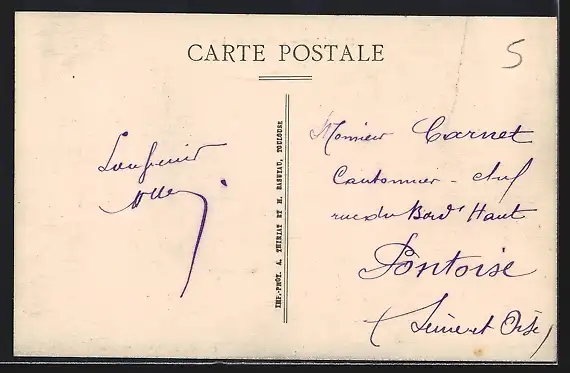 CARTE POSTALE
5
Souvenir
IMP.-PHOT. A. THIRIAT ET H. BASUYAU, TOULOUSE
Monsieur Carnet
Cantonnier - chef
rue du Bord' Haut
Pontoise
(Seine et Oise)